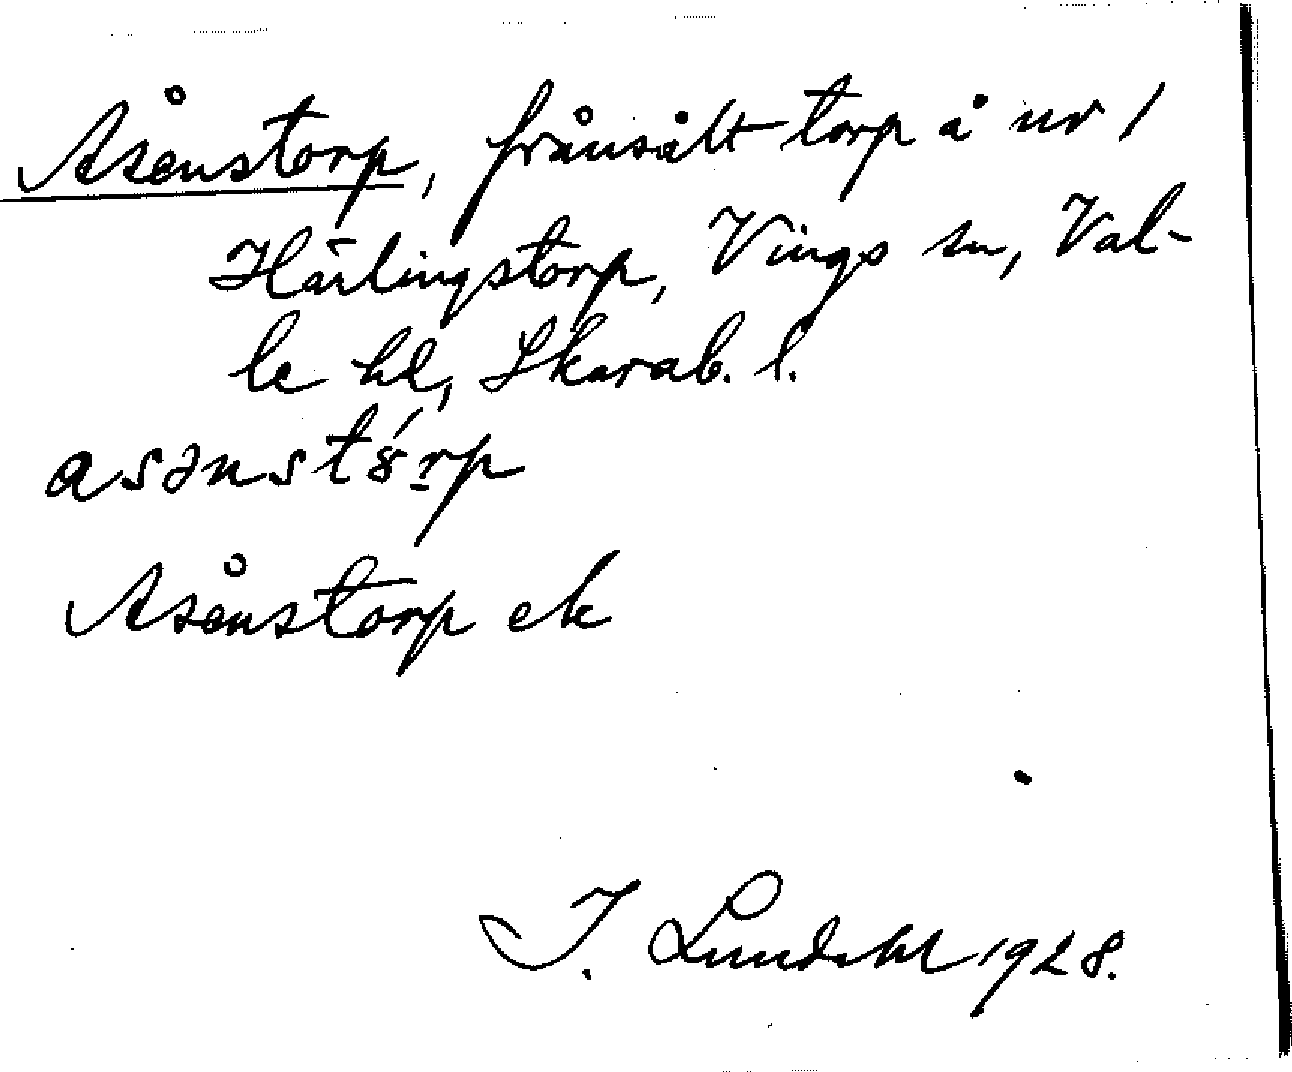 Åsenstorp, frånsålt torp å nr 1
Härlingstorp, Vings sn, Val-
le hd, Skarab. l.
asənstó̤rp
Åsenstorp ek
I. Lundahl 1928.